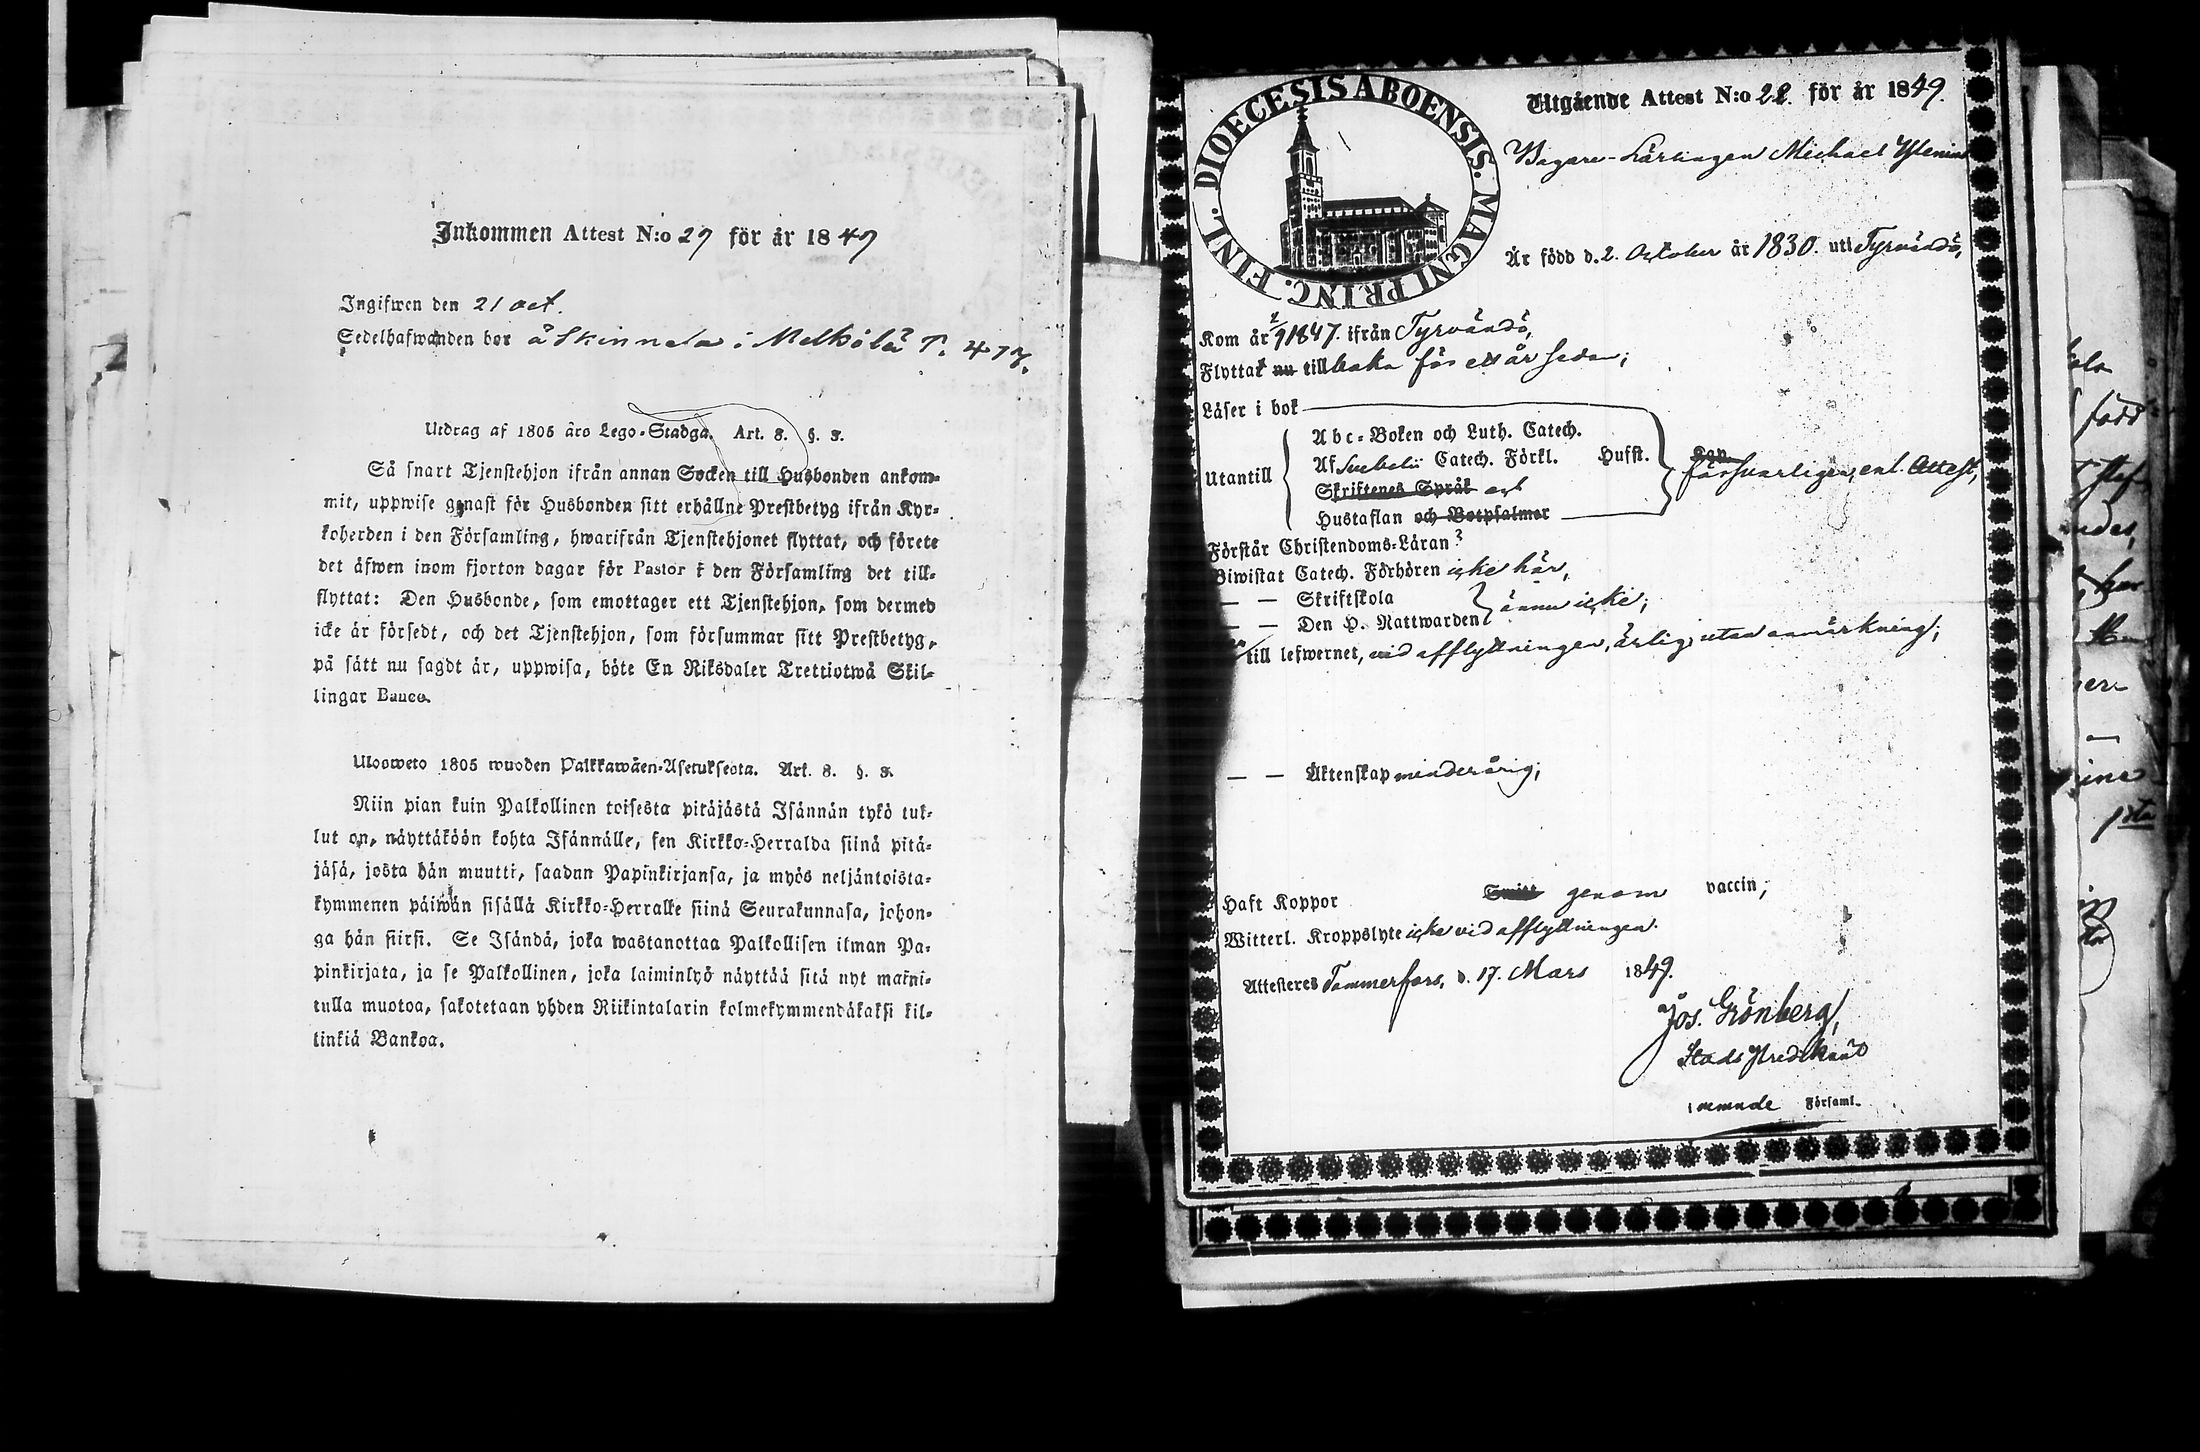 Inkommen Attest N:o 27 för år 1849
Ingifwen den 21 oct.
Sedelhafwanden bor å Skinnala i Melkölä T. 473.
Utdrag af 1805 års Lego-Stadga. Art. 8. §. 3.
Så snart Tjenstehjon ifrån annan Socken till Husbonden ankom-
mit, uppwise genast för Husbonden sitt erhållne Prestbetyg ifrån Kyr-
koherden i den Församling, hwarifrån Tjenstehjonet flyttat, och förete
det äfwen inom fjorton dagar för Pastor i den Församling det till-
flyttat: Den Husbonde, som emottager ett Tjenstehjon, som dermed
icke är försedt, och det Tjenstehjon, som försummar sitt Prestbetyg,
på sätt nu sagdt är, uppwisa, böte En Riksdaler Trettiotwå Skil-
lingar Banco.
Ulosweto 1805 wuoden Palkkawäen-Asetuksesta. Art. 8. §. 3.
Niin pian kuin Palkollinen toisesta pitäjästä Isännän tykö tul-
lut on, näyttäköön kohta Isännälle, sen Kirkko-Herralda siinä pitä-
jäsä, josta hän muutti, saadun Papinkirjansa, ja myös neljäntoista-
kymmenen päiwän sisällä Kirkko-Herralle siinä Seurakunnasa, johon-
ga hän siirsi. Se Isändä, joka wastanottaa Palkollisen ilman Pa-
pinkirjata, ja se Palkollinen, joka laiminlyö näyttää sitä nyt maini-
tulla muotoa, sakotetaan yhden Riikintalarin kolmekymmendäkaksi kil-
linkiä Bankoa.
DIOECESIS ABOENSIS. MAGNI PRINC. FINL.
Utgående Attest N:o 28. för år 1849.
Bagare-Lärlingen Michael
Är född d. 2. October år 1830. uti Tyrvändö,
Kom år 2/9 1847. ifrån Tyrvändö,
Flyttat nu tillbaka för ett år sedan;
Läser i bok
Abc-Boken och Luth. Catech.
Utantill Af Svebelii Catech. Förkl. Hufst. försvarligen, enl. Attest,
Skriftenes Språk och
Hustaflan och Botpsalmer
Förstår Christendoms-Läran?
Biwistat Catech. Förhören icke här,
— — Skriftskola
— — Den H. Nattwarden ännu icke;
till lefwernet, vid afflyttningen, ärlig, utan anmärkning;
— — Äktenskap minderårig;
Haft Koppor Smitt genom vaccin,
Witterl. Kroppslyte icke vid afflyttningen.
Attesteres Tammerfors, d. 17. Mars 1849.
Jos. Grönberg,
Stads Predikant
Församl.
född
1sta